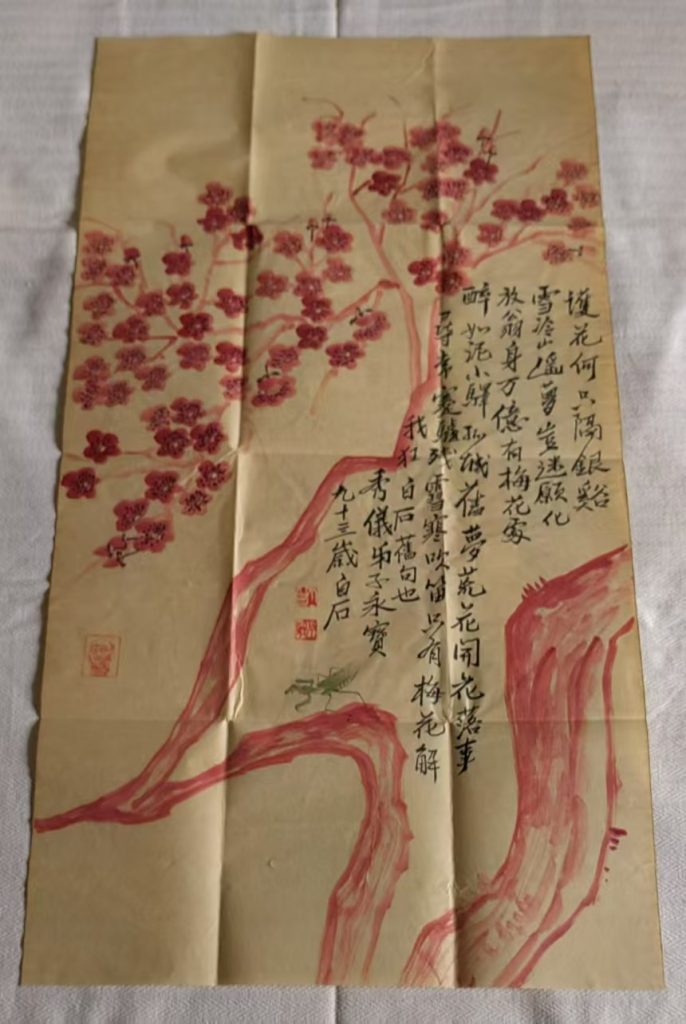 護花何只隔銀谿
雪冷山遙夢豈迷願化
放翁身万億有梅花處
醉如泥小驛孤城舊夢荒花開花落事
尋常蹇驢殘雪寒吹笛只有梅花解
我狂白石舊句也
秀儀弟子永寶
九十三歲白石